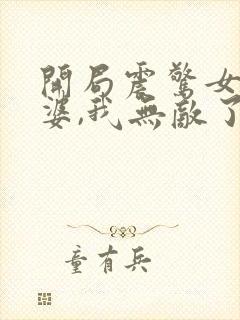 開局震驚女
婆,我無敵了
童有兵